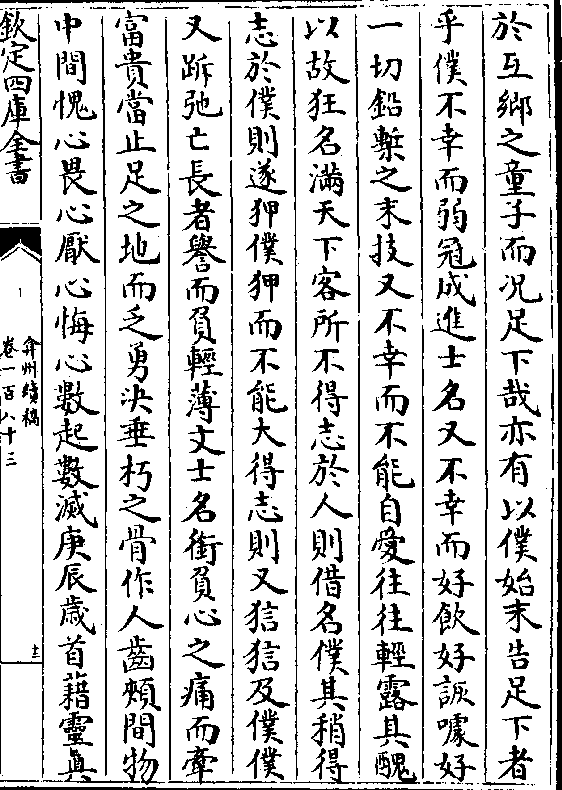 於互鄉之童子而况足下哉亦有以僕始末告足下者
乎僕不幸而弱冠成進士名又不幸而好飲好詼噱好
一切鉛槧之末技又不幸而不能自愛往往輕露其醜
以故狂名滿天下客所不得志於人則借名僕其稍得
志於僕則遂狎僕狎而不能大得志則又狺狺及僕僕
又跅弛亡長者譽而負輕薄文士名銜負心之痛而牽
富貴當止足之地而乏勇決垂朽之骨作人齒頰間物
中間愧心畏心厭心悔心數起數滅庚辰歲首藉靈真
欽定四庫全書
弇州續稿
卷一百八十三